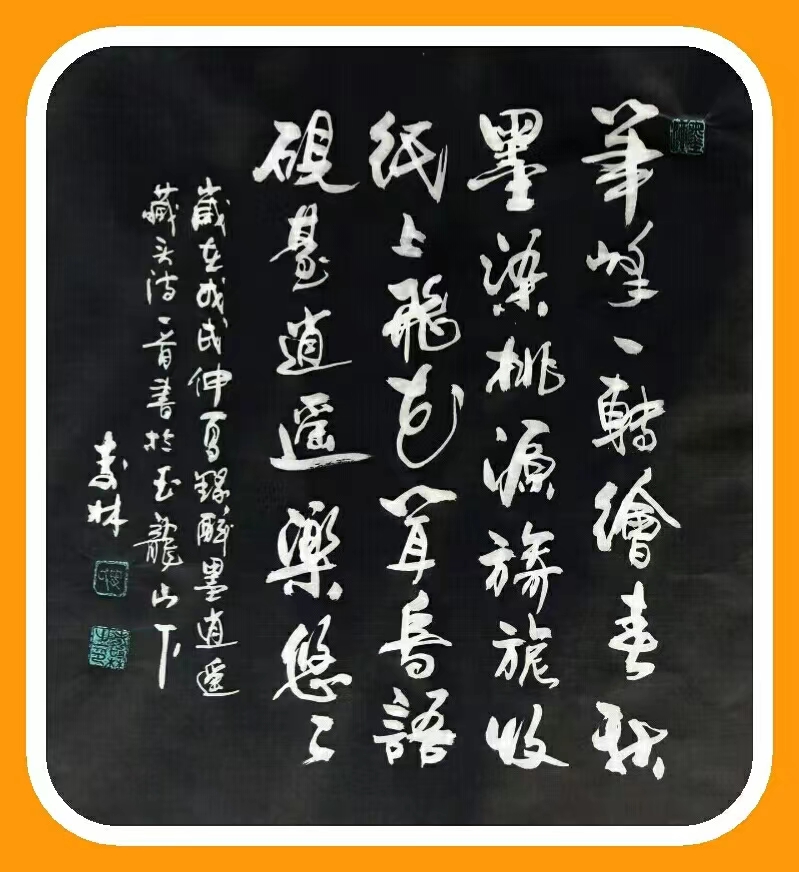 筆峰一轉繪春秋
墨染桃源旖旎收
紙上飛花聞鳥語
硯臺逍遥樂悠々
歲在戊戌仲夏錄醉墨逍遥
藏头诗一首書於玉龍山下
寿林